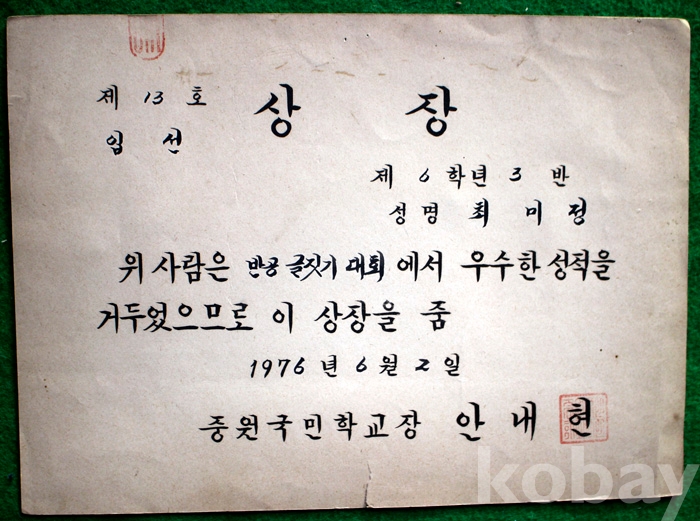 제 13 호
상 장
입 선
제 6 학년 3 반
성명 최 미 정
위 사람은 반공 글짓기 대회 에서 우수한 성적을
거두었으므로 이 상장을 줌
1976 년 6 월 2 일
중원국민학교장 안 내 현
kobay